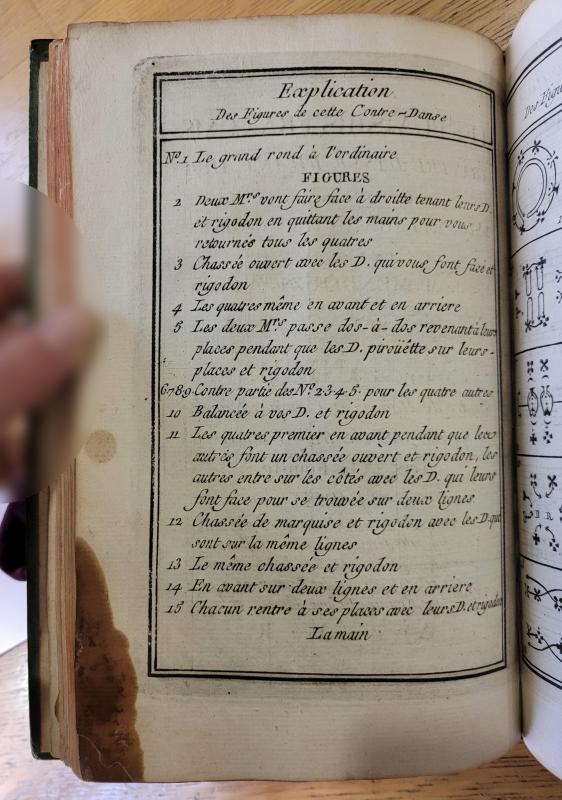 Explication
Des Figures de cette Contre-Danse
No. 1 Le grand rond à l'ordinaire
FIGURES
2 Deux Mrs vont faire face à droitte tenant leurs D.
et rigodon en quittant les mains pour vous
retournés tous les quatres
3 Chassée ouvert avec les D. qui vous font face et
rigodon
4 Les quatres même en avant et en arriere
5 Les deux Mrs passe dos-à-dos revenant à leurs
places pendant que les D. piroüette sur leurs-
places et rigodon
6789 Contre partie des No. 2.3.4.5. pour les quatre autres
10 Balancée à vos D. et rigodon
11 Les quatres premier en avant pendant que les
autres font un chassée ouvert et rigodon, les
autres entre sur les côtés avec les D. qui leurs
font face pour se trouvée sur deux lignes
12 Chassée de marquise et rigodon avec les D. qui
sont sur la même lignes
13 Le même chassée et rigodon
14 En avant sur deux lignes et en arriere
15 Chacun rentre à ses places avec leurs D. et rigodon
La main